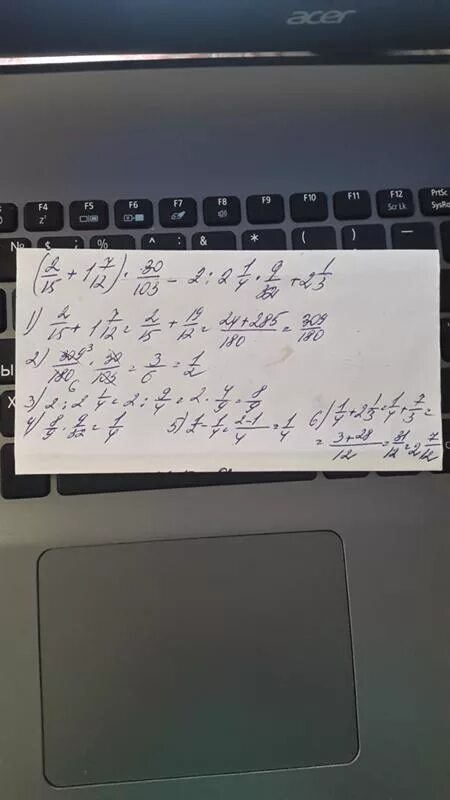 acer
F4 F5 F6 F7 F8 F9 F10 F11 F12 PrtSc
z² Scr Lk SysR
№ $ ; % ^ : & * ( )
(2/15 + 1 7/12) · 30/103 - 2 : 2 1/4 · 9/32 + 2 1/3
1) 2/15 + 1 7/12 = 2/15 + 19/12 = 24+285/180 = 309/180
2) 309 3/180 6 · 30/103 = 3/6 = 1/2
3) 2 : 2 1/4 = 2 : 9/4 = 2 · 4/9 = 8/9
4) 8/9 · 9/32 = 1/4 5) 1/2 - 1/4 = 2-1/4 = 1/4 6) 1/4 + 2 1/3 = 1/4 + 7/3 =
= 3+28/12 = 31/12 = 2 7/12